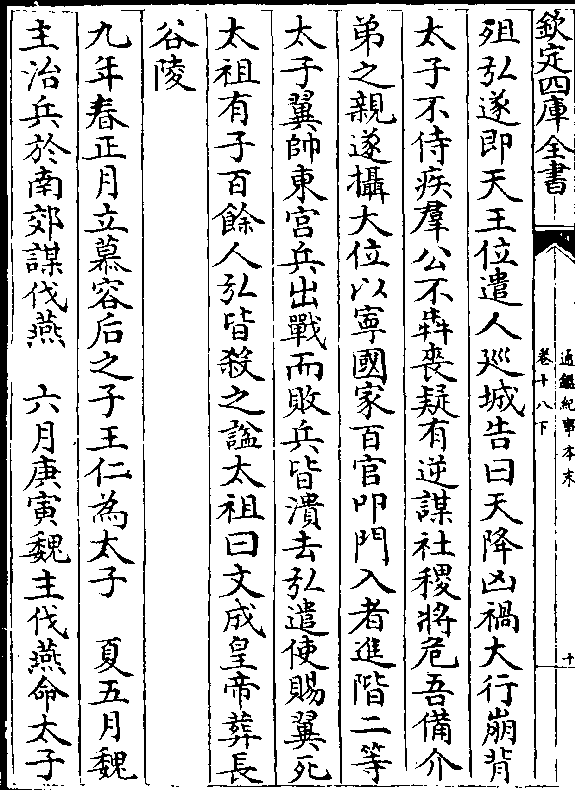 欽定四庫全書
通鑑紀事本末
卷十八下
十
殂弘遂即天王位遣人廵城告曰天降凶禍大行崩背
太子不侍疾羣公不犇喪疑有逆謀社稷將危吾備介
弟之親遂攝大位以寧國家百官叩門入者進階二等
太子翼帥東宮兵出戰而敗兵皆潰去弘遣使賜翼死
太祖有子百餘人弘皆殺之諡太祖曰文成皇帝葬長
谷陵
九年春正月立慕容后之子王仁為太子　夏五月魏
主治兵於南郊謀伐燕　六月庚寅魏主伐燕命太子